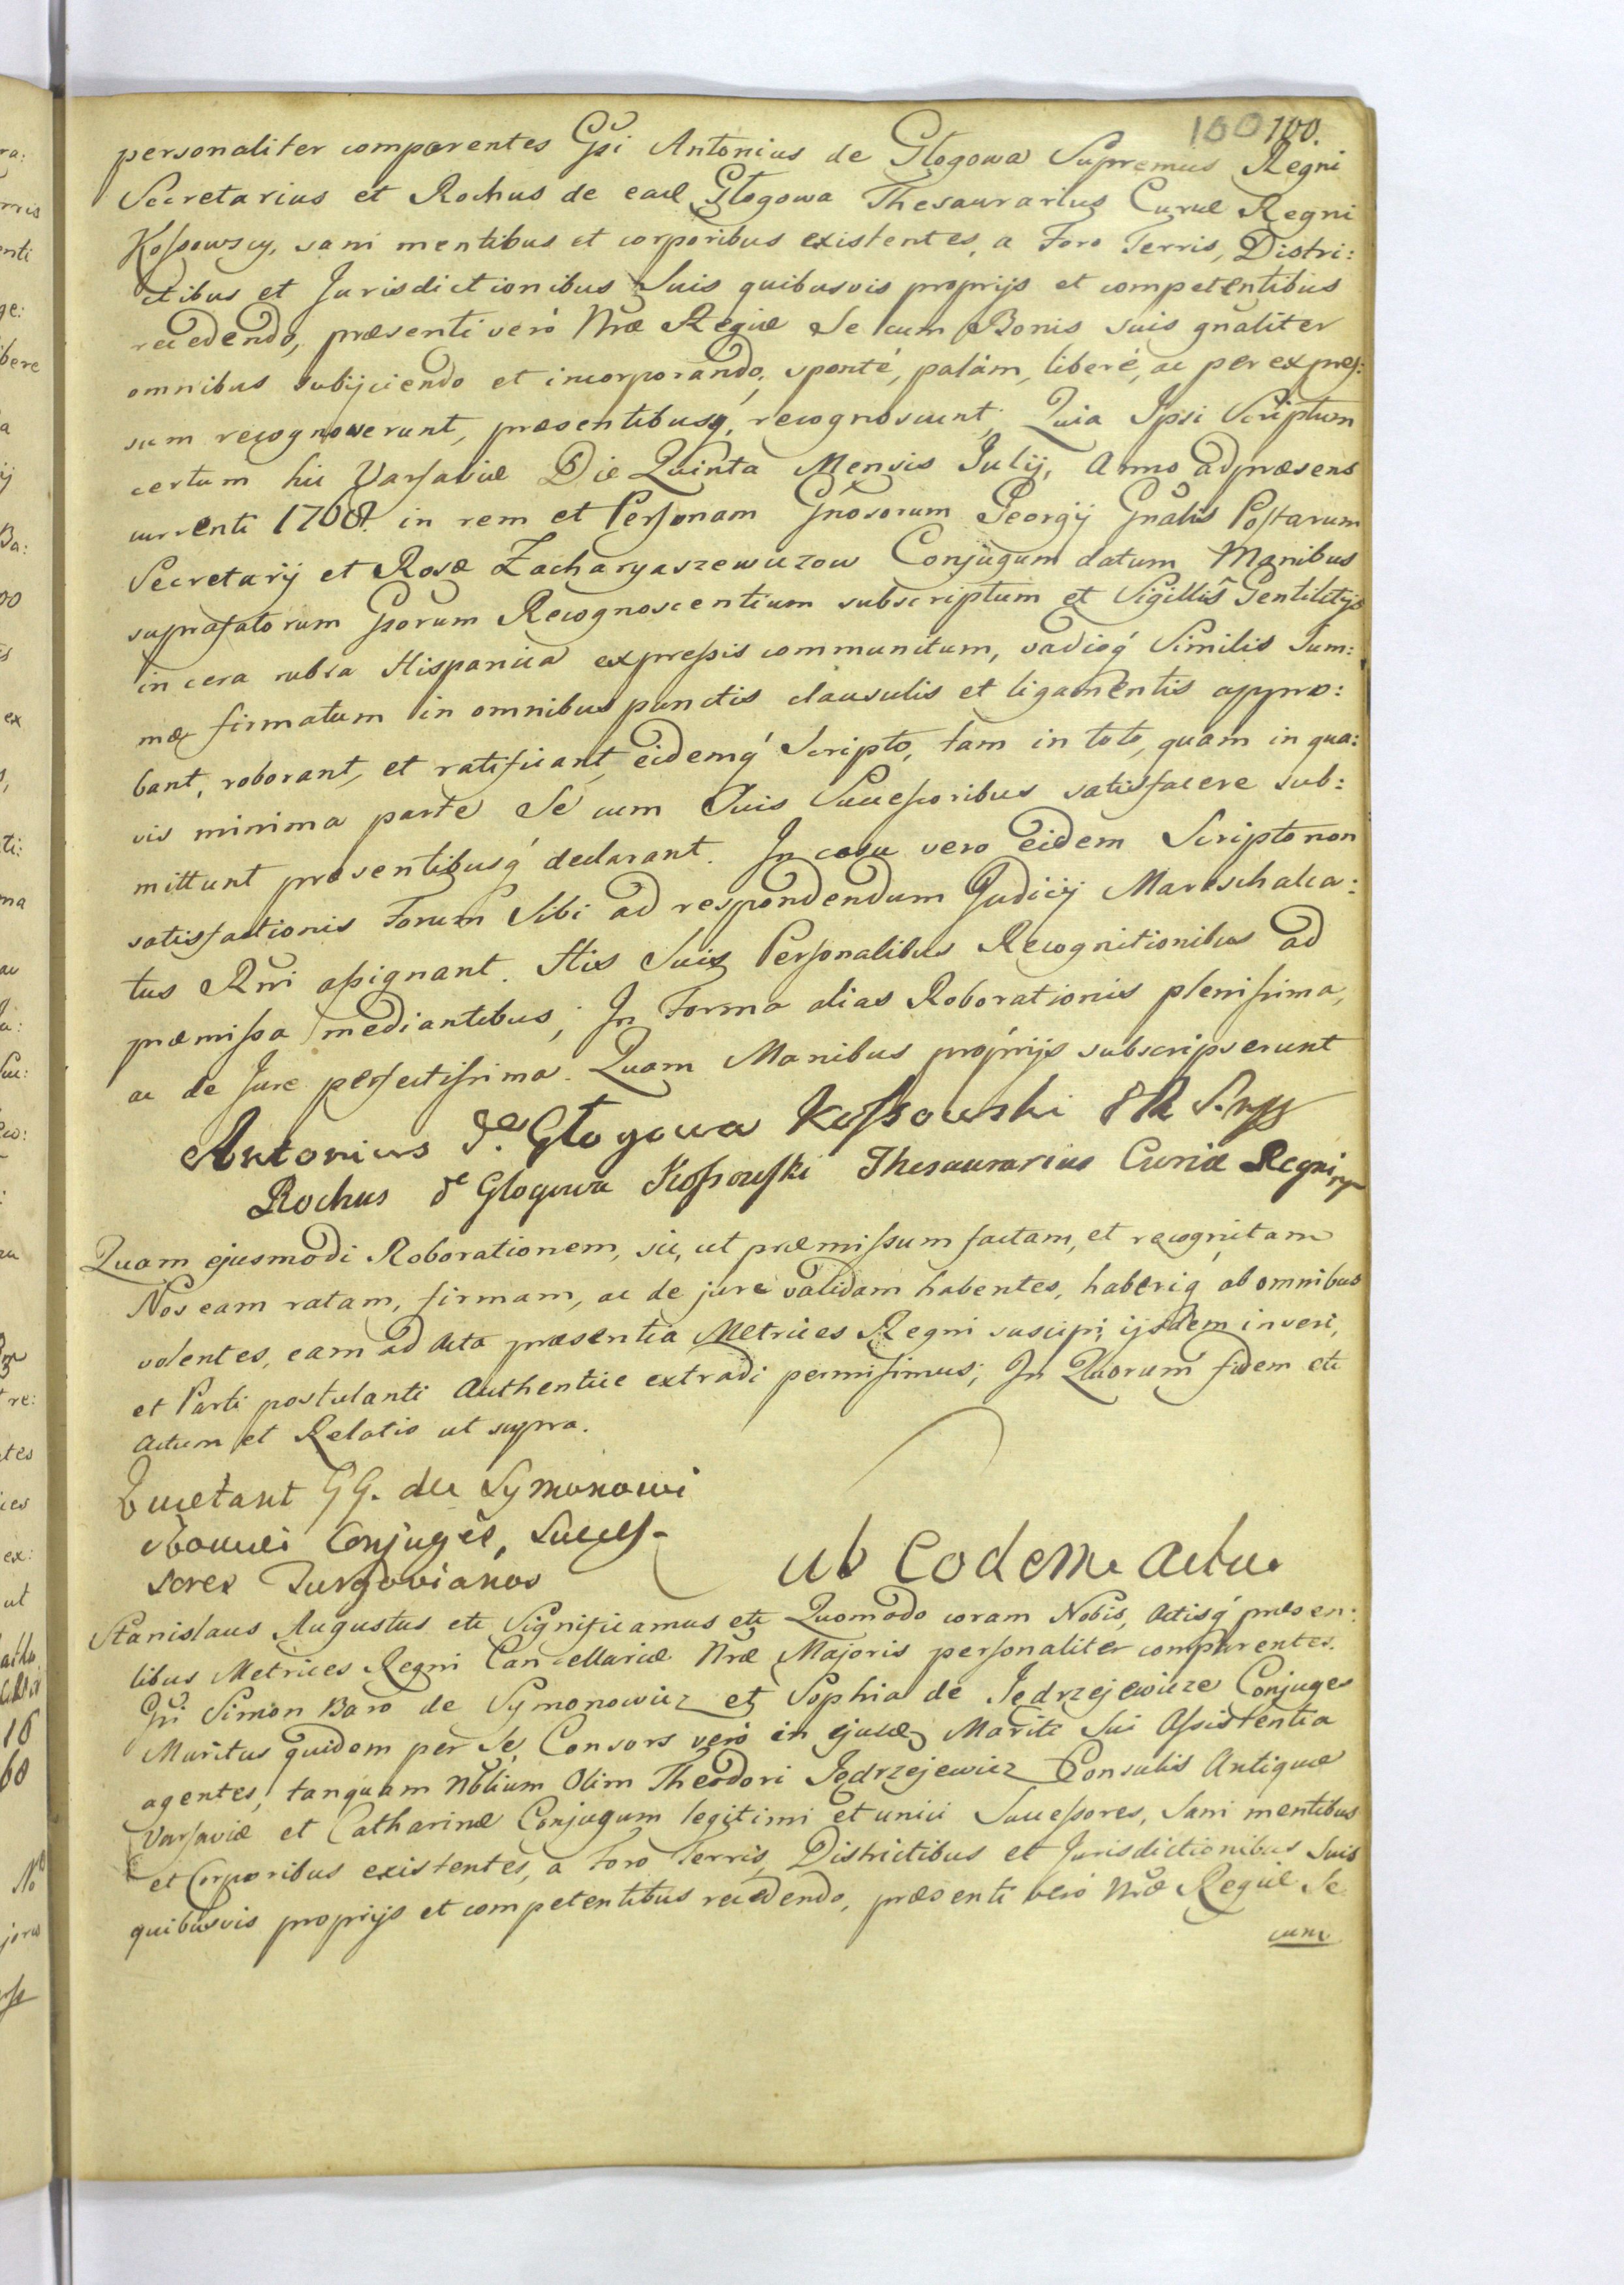 100 100.
personaliter comparentes Gsi Antonius de Głogowa Supremus Regni
Secretarius et Rochus de ead Głogowa Thesaurarius Curiæ Regni
Kossowscy, sani mentibus et corporibus existentes, a Foro Terris, Distri:
ctibus et Jurisdictionibus Suis quibusvis proprijs et competentibus
recedendo, præsenti veró Nræ Regiæ Se cum Bonis suis gnaliter
omnibus subijciendo et incorporando, sponté, palám, liberé, ac per expres:
sum recognoverunt, præsentibusq, recognoscunt, Quia Ipsi Scriptum
certum hic Varsaviæ Die Quinta Mensis Julij, Anno ad præsens
currenti in rem et Personam Gnosorum Georgij Gnalis Postarum
Secretarij et Rosæ Zacharyaszewiczow Conjugum datum Manibus
suprafatorum Gsorum Recognoscentium subscriptum et Sigillis Gentilitijs
in cera rubra Hispanica expressis communitum, vadioq́ Similis Sum:
mæ firmatum in omnibus punctis clausulis et ligamentis appro:
bant, roborant, et ratificant, eidemq́ Scripto, tam in toto, quam in qua:
vis minima parte Se cum Suis Successoribus satisfacere sub:
mittunt præsentibusq́ declarant. In casu vero eidem Scripto non
satisfactionis Forum Sibi ad respondendum Judicij Mareschalca:
tus Rni assignant. His Suis Personalibus Recognitionibus ad
præmissa mediantibus; In Forma alias Roborationis plenissima,
ac de Jure perfectissima. Quam Manibus proprijs subscripserunt
Antonius de Głogowa Kossowski S.mpp
Rochus de Glogowa Kossowski Thesaurarius Curiæ Regni mp
Quam ejusmodi Roborationem, sic, ut præmissum factam, et recognitam
Nos eam ratam, firmam, ac de jure validam habentes, haberiq́ ab omnibus
volentes, eam ad Acta præsentia Metrices Regni suscipi, ijsdem inseri,
et Parti postulanti Authentice extradi permisimus; In Quorum fidem etc
Actum et Relatio ut supra.
Quietant GG. de Symonowi
Conjuges, Succes-
sores Jurgovianos
Ab Eodem Actu
Stanislaus Augustus etc Significamus etc Quomodo coram Nobis, Actisq́ præsen:
tibus Metrices Regni Cancellariæ Nræ Majoris personaliter comparentes
Gsi Simon Baro de Symonowicz et Sophia de Jędrzejewicze Conjuges
Maritus quidem per Se, Consors veró in ejusd Mariti Sui Assistentia
agentes, tanquam Nbilium Olim Theodori Jędrzejewicz Consulis Antiquæ
Varsaviæ et Catharinæ Conjugum legitimi et unici Successores, Sani mentibus
et Corporibus existentes, a Foro Terris, Districtibus et Jurisdictionibus Suis
quibusvis proprijs et competentibus recedendo, præsenti veró Nræ Regiæ Se
cum